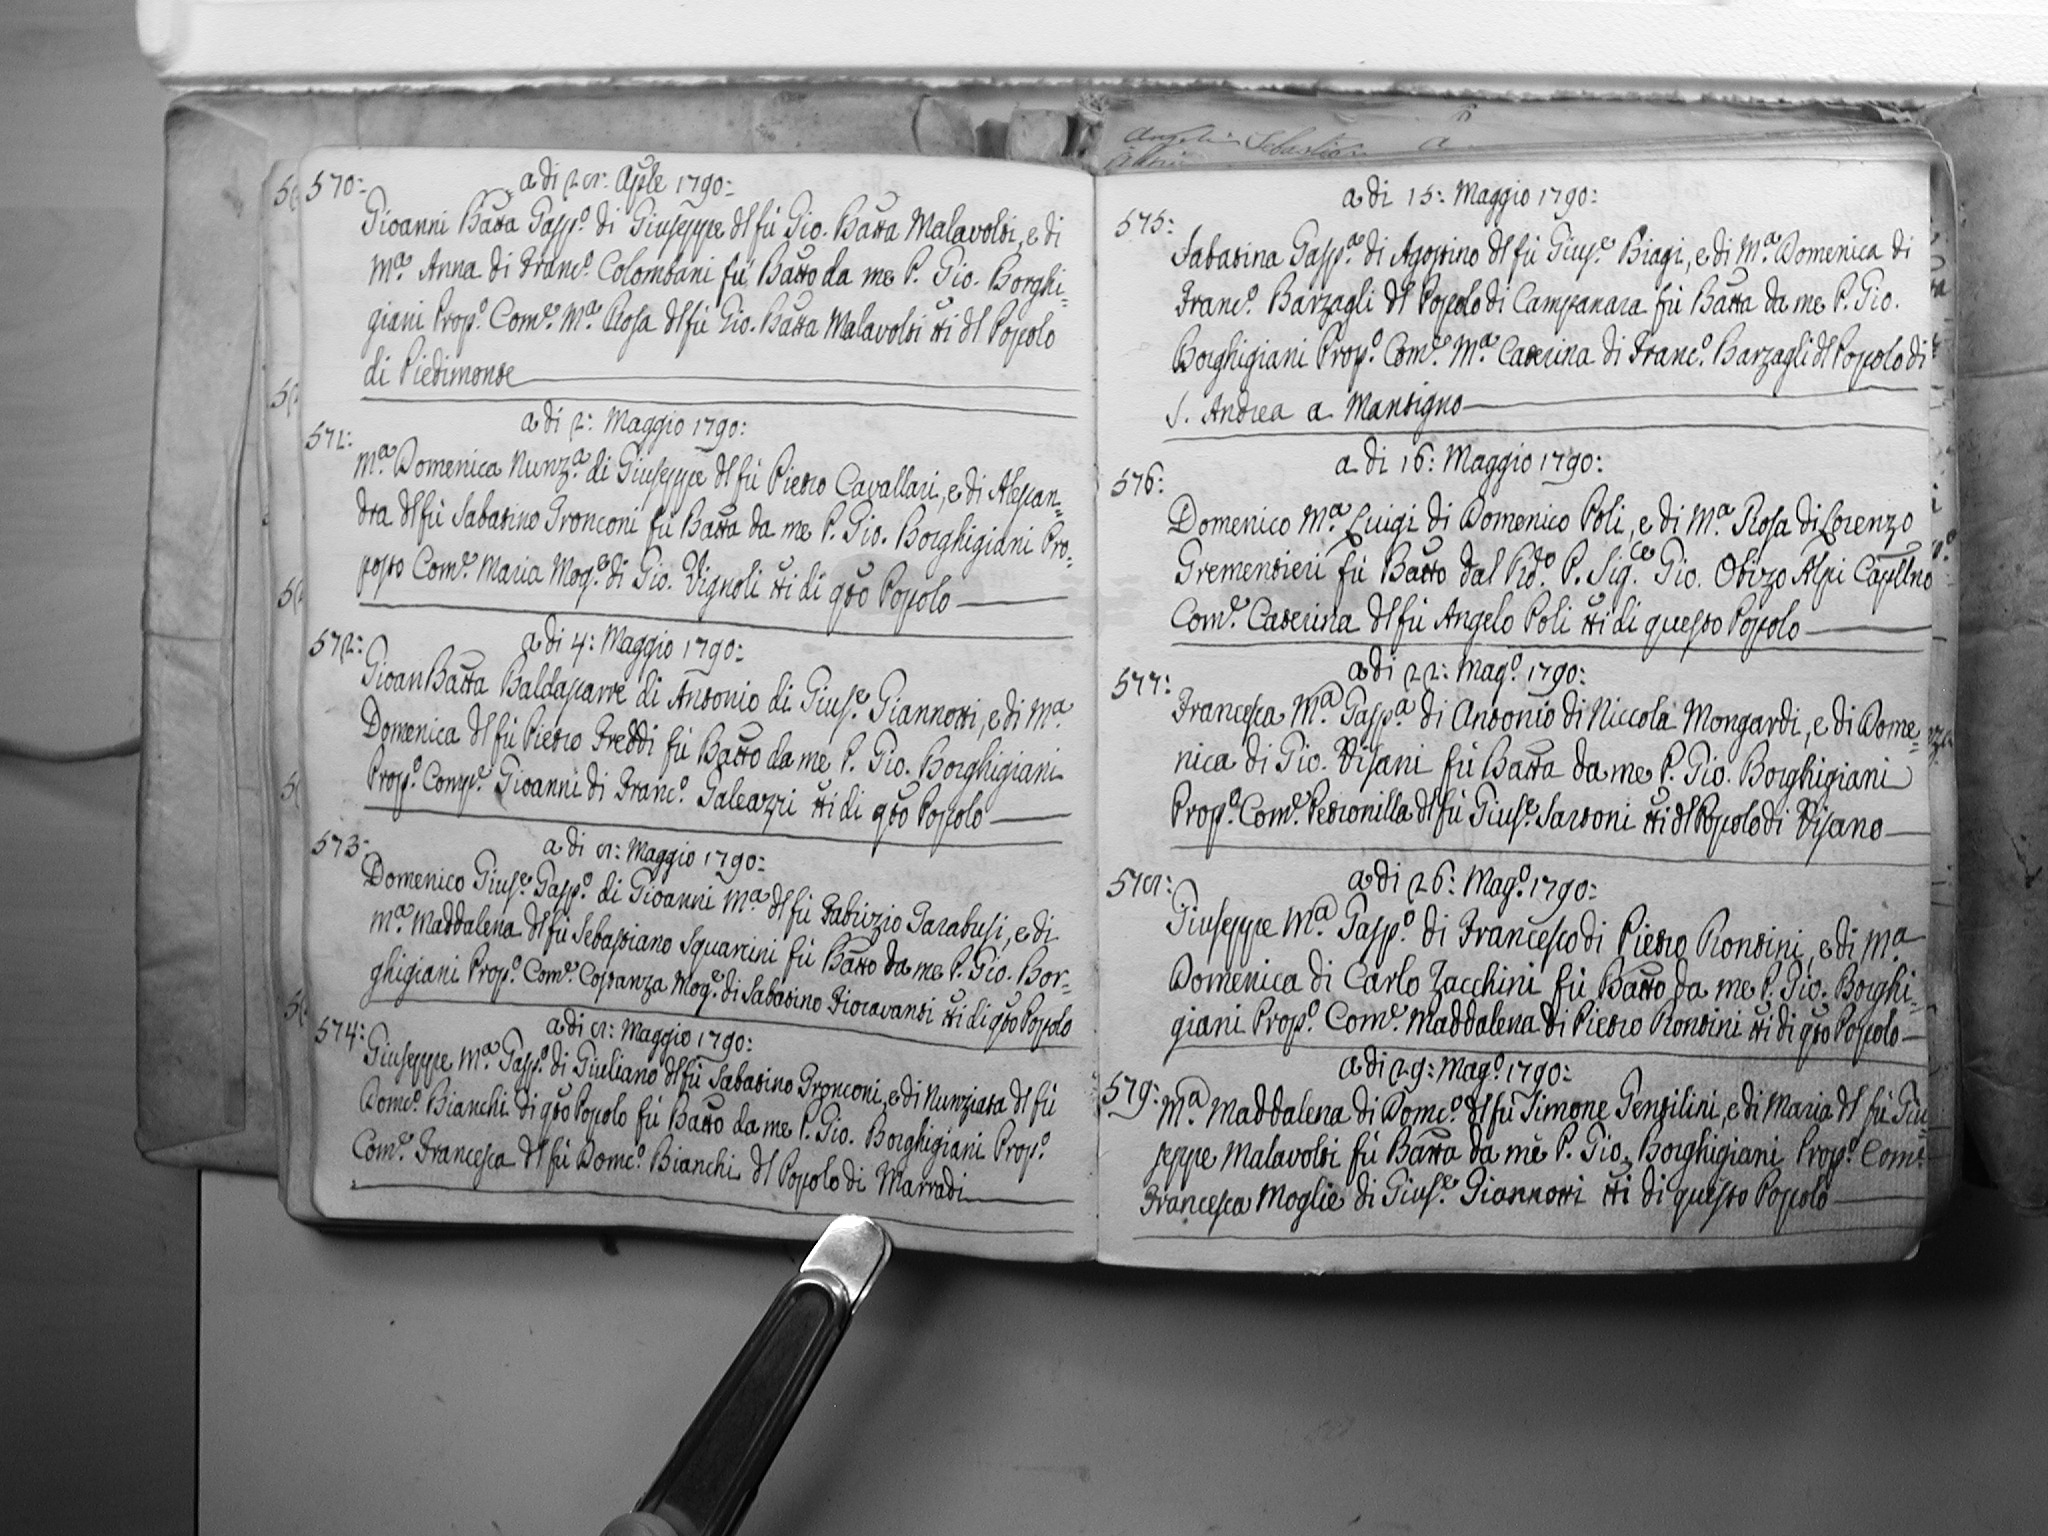 570:
a di 28: Aple 1790:
Gioanni Batta Gasp.º di Giuseppe dl fù Gio. Batta Malavolti, e di
M.ª Anna di Franc.º Colombani fù Batto da me P. Gio. Borghi=
giani Prop.º Com.e M.ª Rosa dl fù Gio. Batta Malavolti tti dl Popolo
di Piedimonte
571:
a di 2: Maggio 1790:
M.ª Domenica Nunz.ª di Giuseppe dl fù Pietro Cavallari, e di Alessan=
dra dl fù Sabatino Tronconi fù Batta da me P. Gio. Borghigiani Pro=
posto Com.e Maria Mog.e di Gio. Vignoli tti di qto Popolo
572:
a di 4: Maggio 1790:
GioanBatta Baldassarre di Antonio di Gius.e Giannotti, e di M.ª
Domenica dl fù Pietro Freddi fù Batto da me P. Gio. Borghigiani
Prop.º Comp.e Gioanni di Franc.º Galeazzi tti di qto Popolo
573:
a di 8: Maggio 1790:
Domenico Gius.e Gasp.º di Gioanni M.ª dl fù Fabrizio Tarabusi, e di
M.ª Maddalena dl fù Sebastiano Squarcini fù Batto da me P. Gio. Bor=
ghigiani Prop.º Com.e Costanza Mog.e di Sabatino Fioravanti tti di qto Popolo
574:
a di 8: Maggio 1790:
Giuseppe M.ª Gasp.º di Giuliano dl fù Sabatino Tronconi, e di Nunziata dl fù
Domc.º Bianchi di qto Popolo fù Batto da me P. Gio. Borghigiani Prop.º
Com.e Francesca dl fù Domc.º Bianchi dl Popolo di Marradi
Sebastia
a di 15: Maggio 1790:
575:
Sabatina Gasp.ª di Agostino dl fù Gius.e Biagi, e di M.ª Domenica di
Franc.º Barzagli dl Popolo di Campanara fù Batta da me P. Gio.
Borghigiani Prop.º Com.e M.ª Caterina di Franc.º Barzagli dl Popolo di
S. Andrea a Mantigno
a di 16: Maggio 1790:
576:
Domenico M.ª Luigi di Domenico Poli, e di M.ª Rosa di Lorenzo
Grementieri fù Batto dal Rdo. P. Sig.e Gio. Obizo Alpi Capllno
Com.e Caterina dl fù Angelo Poli tti di questo Popolo
a di 22: Mag.º 1790:
577:
Francesca M.ª Gasp.ª di Antonio di Niccola Mongardi, e di Dome=
nica di Gio. Visani fù Batta da me P. Gio. Borghigiani
Prop.º Com.e Petronilla dl fù Gius.e Sartoni tti dl Popolo di Visano
a di 26: Mag.º 1790:
578:
Giuseppe M.ª Gasp.º di Francesco di Pietro Rontini, e di M.ª
Domenica di Carlo Zacchini fù Batto da me P. Gio. Borghi=
giani Prop.º Com.e Maddalena di Pietro Rontini tti di qto Popolo
a di 29: Mag.º 1790:
579:
M.ª Maddalena di Domc.º dl fù Simone Gentilini, e di Maria dl fù Giu
seppe Malavolti fù Batta da me P. Gio. Borghigiani Prop.º Com.e
Francesca Moglie di Gius.e Giannotti tti di questo Popolo